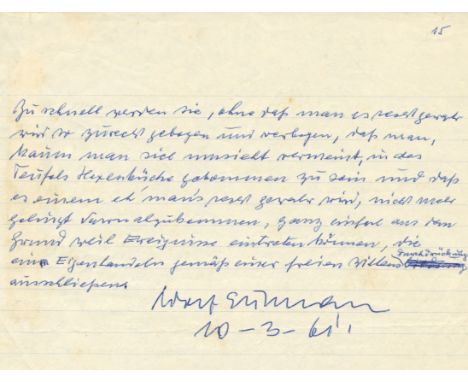 15
Zu schnell werden sie, ohne daß man es recht gewahr
wird so zurecht gebogen und verbogen, daß man,
kaum man sich umsieht vermeint, in des
Teufels Hexenküche gekommen zu sein und daß
es einem eh' man's recht gewahr wird, nicht mehr
gelingt davon abzukommen, ganz einfach aus dem
Grund weil Ereignisse eintreten können, die
ein Eigenhandeln gemäß einer freien Willens
ausschließen
10-3-61